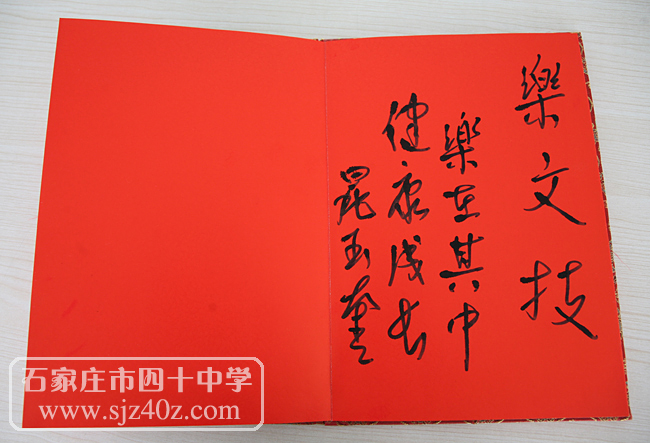 樂文技
樂在其中
健康成长
晁玉奎
石家庄市四十中学
www.sjz40z.com